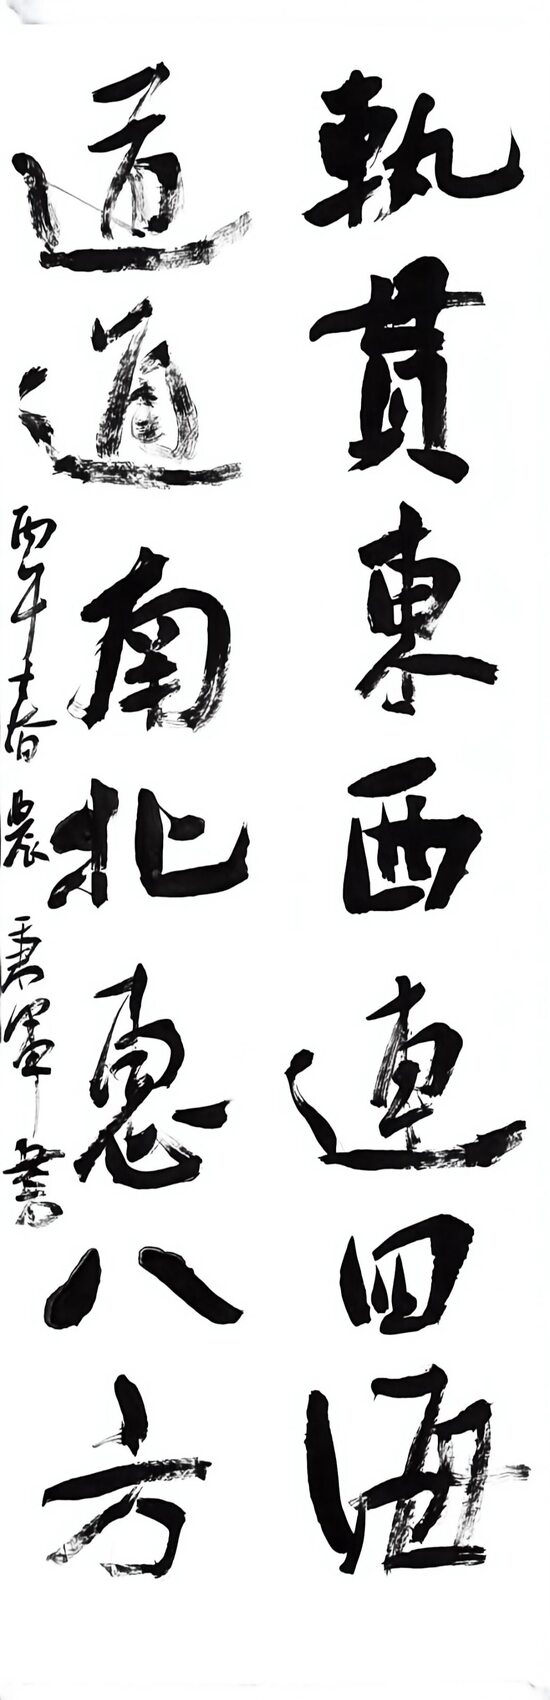 軌貫東西連四海
道道南北惠八方
丙午春晨秉軍書